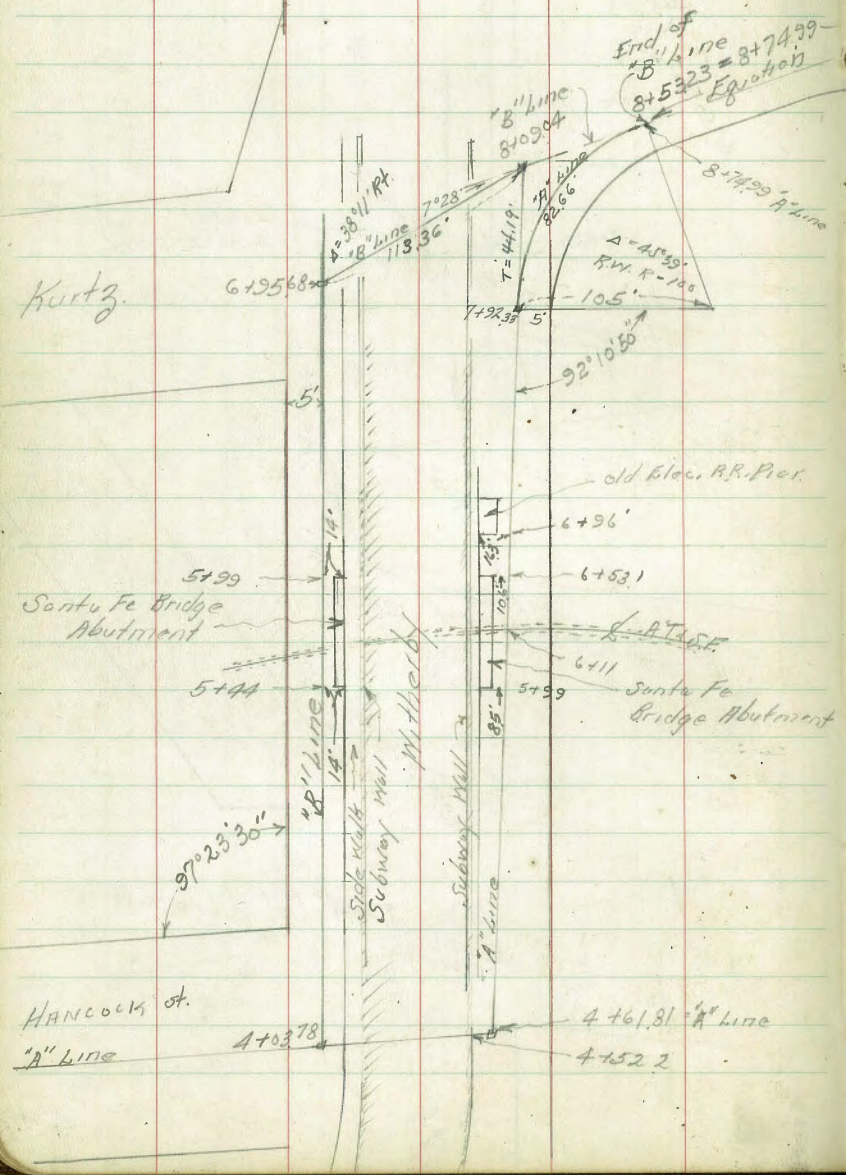 End of
"B" Line
8+53.23 = 8+74.99
Equation
"B" Line
8+09.04
"A" Line
82.66
8+74.99 "A" Line
Δ=38°11' Rt.
7°28'
"B" Line
113.36'
T=44.19'
Δ=45°39'
R.W. R=100
105'
Kurtz.
6+95.68
7+92.33
5'
92°10'50"
5'
old Elec. R.R. Pier.
6+96'
14'
5+99
6+53.1
10.6
Santa Fe Bridge
Abutment
℄ A.T.&S.F.
6+11
5+44
5+99
Santa Fe
Bridge Abutment
8.5'
14'
"B" Line
Witherby
97°23'30"
Side Walk
Subway Wall
Subway Wall
"A" Line
HANCOCK St.
"A" Line
4+03.78
4+61.81 = "A" Line
4+52.2